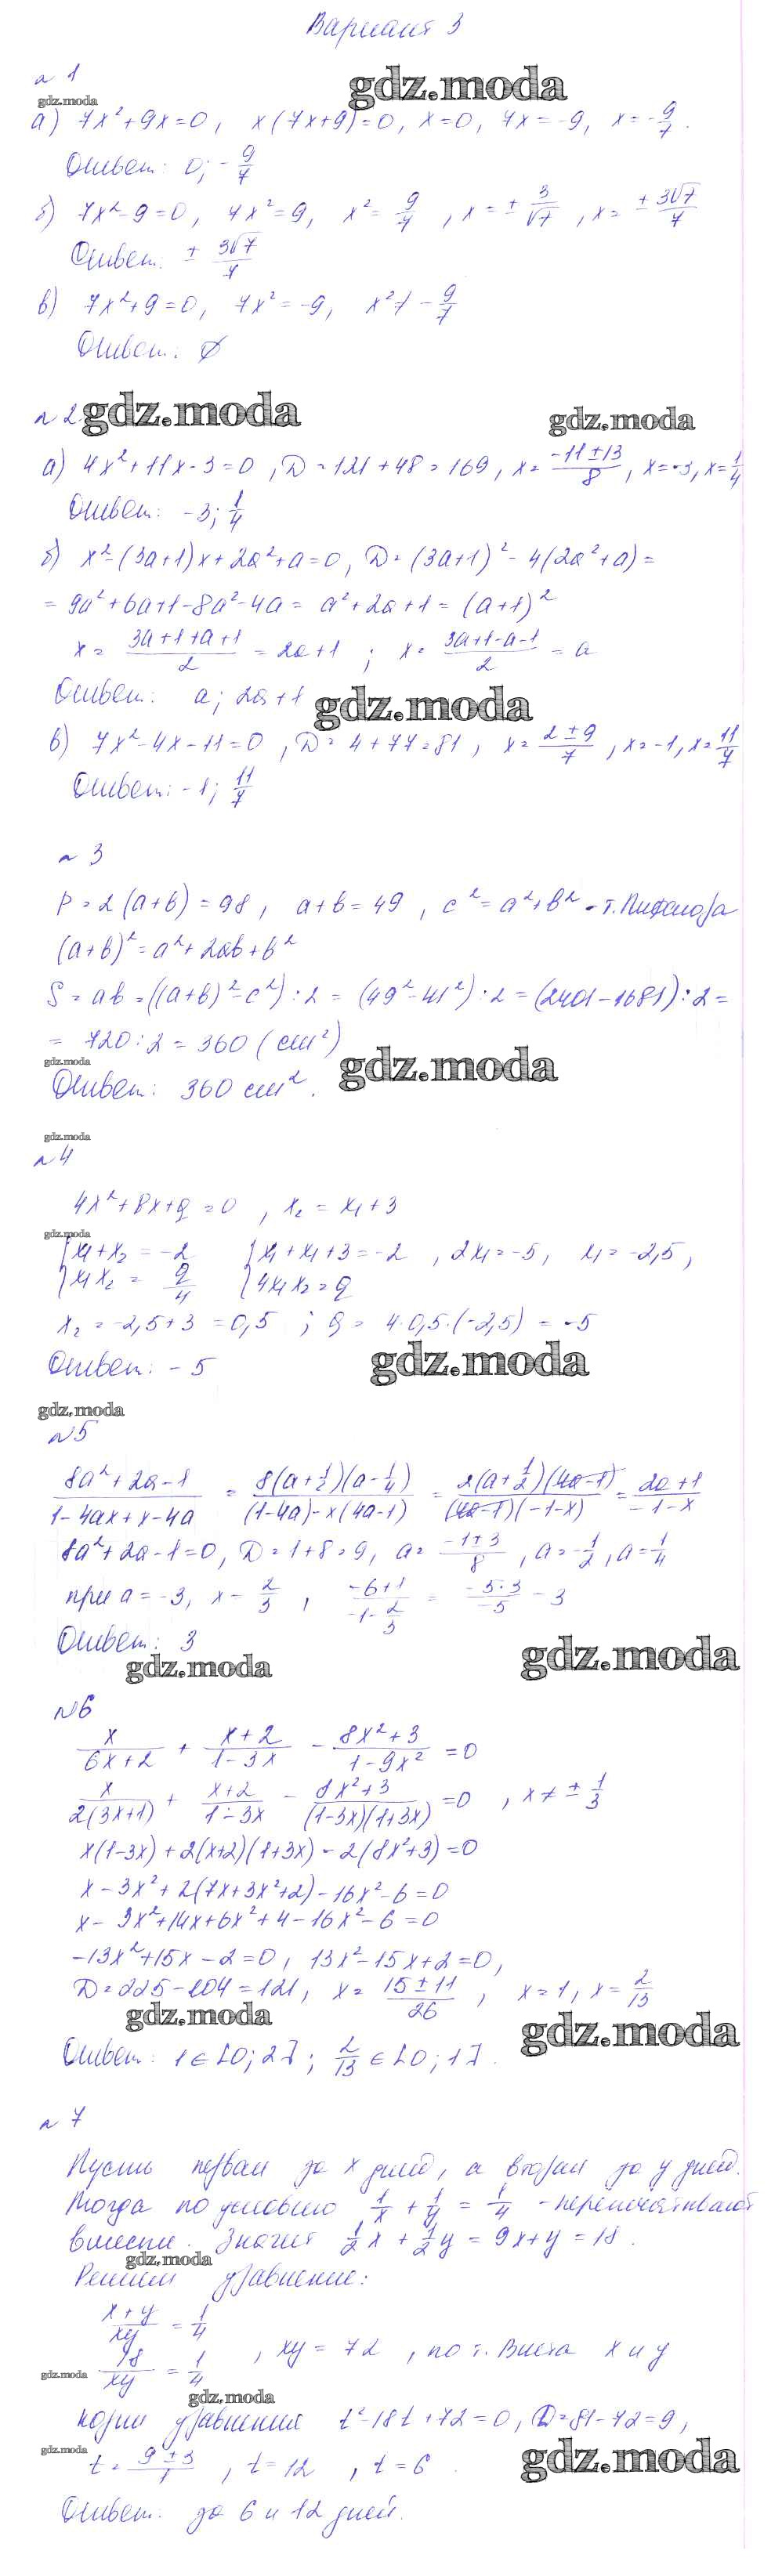 Вариант 3
№ 1
gdz.moda
gdz.moda
а) 7x²+9x=0, x(7x+9)=0, x=0, 7x=-9, x=-9/7.
Ответ: 0; -9/7
б) 7x²-9=0, 7x²=9, x²=9/7, x=±3/√7, x=±3√7/7
Ответ: ±3√7/7
в) 7x²+9=0, 7x²=-9, x²≠-9/7
Ответ: ∅
№ 2
gdz.moda
gdz.moda
а) 4x²+11x-3=0, D=121+48=169, x=(-11±13)/8, x=-3, x=1/4
Ответ: -3; 1/4
б) x²-(3a+1)x+2a²+a=0, D=(3a+1)²-4(2a²+a)=
=9a²+6a+1-8a²-4a=a²+2a+1=(a+1)²
x=(3a+1+a+1)/2=2a+1; x=(3a+1-a-1)/2=a
Ответ: a; 2a+1
gdz.moda
в) 7x²-4x-11=0, D=4+77=81, x=(2±9)/7, x=-1, x=11/7
Ответ: -1; 11/7
№ 3
P=2(a+b)=98, a+b=49, c²=a²+b² - т. Пифагора
(a+b)²=a²+2ab+b²
S=ab=((a+b)²-c²):2=(49²-41²):2=(2401-1681):2=
=720:2=360 (см²)
gdz.moda
gdz.moda
Ответ: 360 см².
gdz.moda
№4
4x²+8x+q=0, x₂=x₁+3
gdz.moda
{x₁+x₂=-2 {x₁+x₁+3=-2, 2x₁=-5, x₁=-2,5,
{x₁x₂=q/4 {4x₁x₂=q
x₂=-2,5+3=0,5; q=4·0,5·(-2,5)=-5
Ответ: -5
gdz.moda
gdz.moda
№5
(8a²+2a-1)/(1-4ax+x-4a)=8(a+1/2)(a-1/4)/((1-4a)-x(4a-1))=2(a+1/2)(4a-1)/((4a-1)(-1-x))=(2a+1)/(-1-x)
8a²+2a-1=0, D=1+8=9, a=(-1±3)/8, a=-1/2, a=1/4
при a=-3, x-2/3, (-6+1)/(-1-2/3)=(-5·3)/(-5)-3
Ответ: 3
gdz.moda
gdz.moda
№6
x/(6x+2)+(x+2)/(1-3x)-(8x²+3)/(1-9x²)=0
x/(2(3x+1))+(x+2)/(1-3x)-(8x²+3)/((1-3x)(1+3x))=0, x≠±1/3
x(1-3x)+2(x+2)(1+3x)-2(8x²+3)=0
x-3x²+2(7x+3x²+2)-16x²-6=0
x-3x²+14x+6x²+4-16x²-6=0
-13x²+15x-2=0, 13x²-15x+2=0,
D=225-104=121, x=(15±11)/26, x=1, x=2/13
gdz.moda
gdz.moda
Ответ: 1∈[0;2]; 2/13∈[0;1].
№ 7
Пусть первая за x дней, а вторая за y дней.
Тогда по условию 1/x+1/y=1/4 - перепечатывают
вместе. Значит 1/2x+1/2y=9x+y=18.
gdz.moda
Решим уравнение:
(x+y)/xy=1/4
18/xy=1/4, xy=72, по т. Виета x и y
gdz.moda
gdz.moda
корни уравнения t²-18t+72=0, D=81-72=9,
gdz.moda
t=(9±3)/1, t=12, t=6.
gdz.moda
Ответ: за 6 и 12 дней.